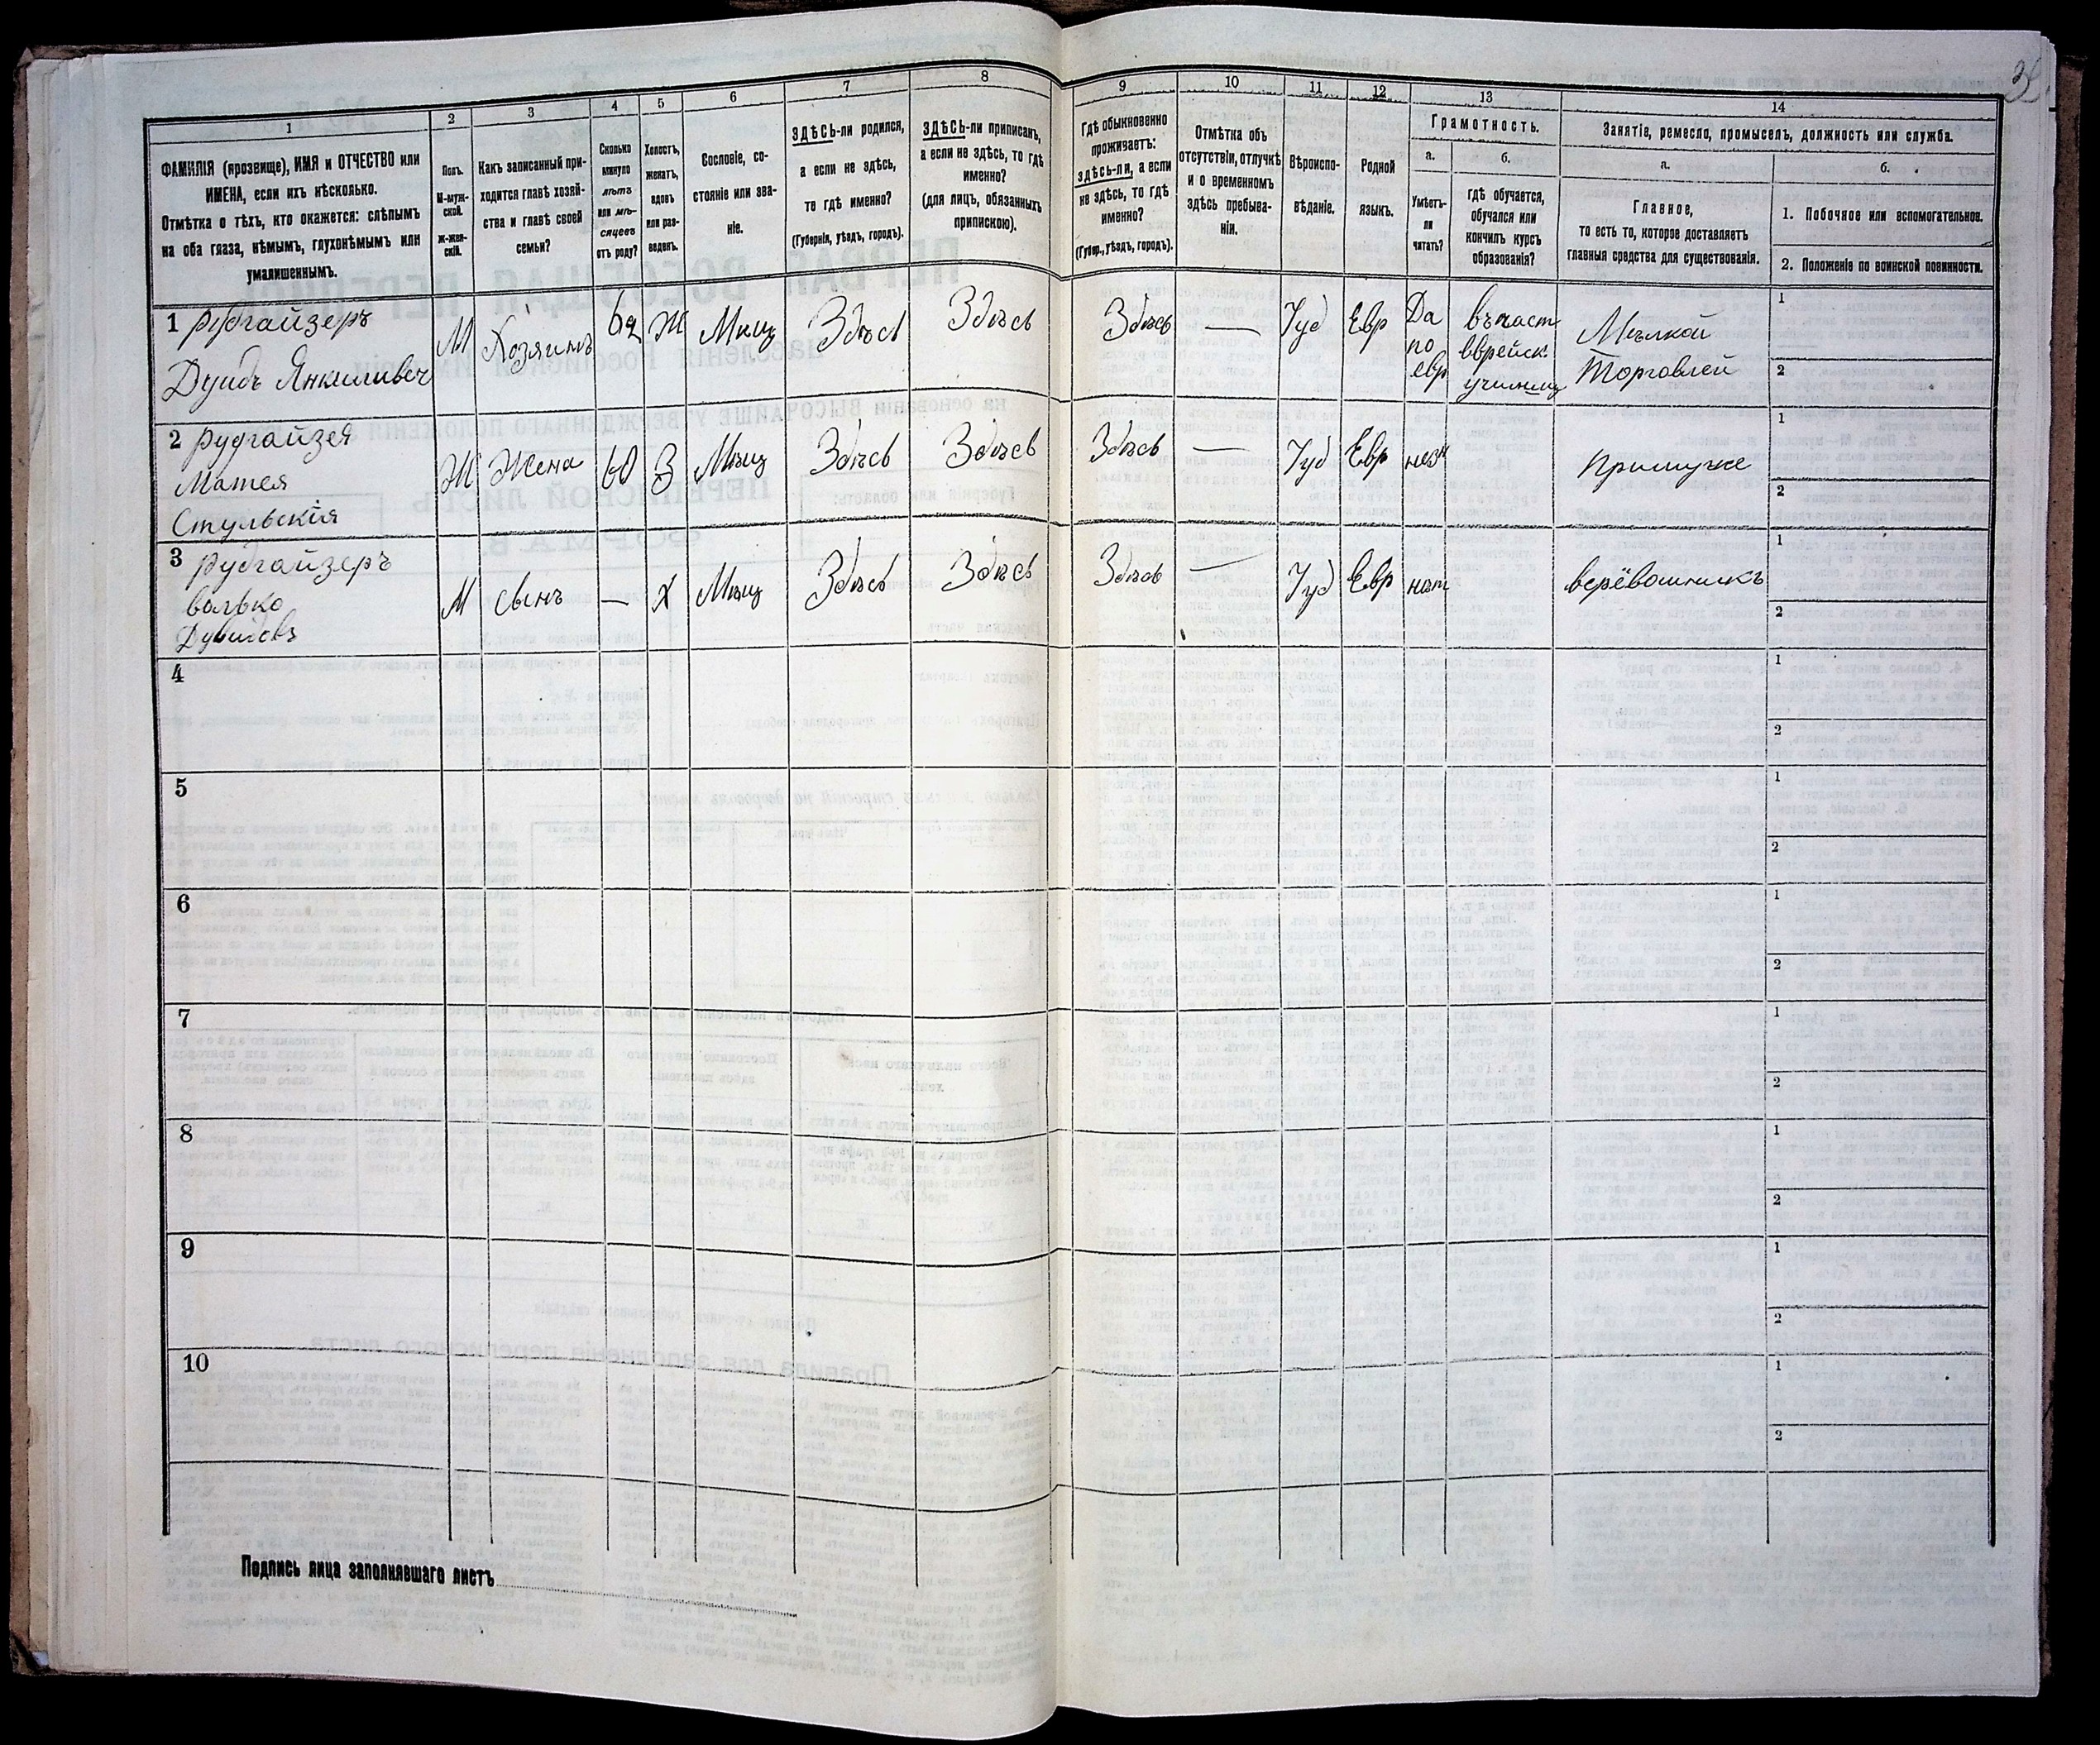 1
2
3
4
5
6
7
8
9
10
11
12
13
14
ФАМИЛІЯ (прозвище), ИМЯ и ОТЧЕСТВО или
ИМЕНА, если ихъ нѣсколько.
Отмѣтка о тѣхъ, кто окажется: слѣпымъ
на оба глаза, нѣмымъ, глухонѣмымъ или
умалишеннымъ.
Полъ.
М-муж-
ской.
Ж-жен-
скій.
Какъ записанный при-
ходится главѣ хозяй-
ства и главѣ своей
семьи?
Сколько
минуло
лѣтъ
или мѣ-
сяцевъ
отъ роду?
Холостъ,
женатъ,
вдовъ
или раз-
веденъ.
Сословіе, со-
стояніе или зва-
ніе.
ЗДѢСЬ-ли родился,
а если не здѣсь,
то гдѣ именно?
(Губернія, уѣздъ, городъ).
ЗДѢСЬ-ли приписанъ,
а если не здѣсь, то гдѣ
именно?
(для лицъ, обязанныхъ
припискою).
Гдѣ обыкновенно
проживаетъ:
здѣсь-ли, а если
не здѣсь, то гдѣ
именно?
(Губер., уѣздъ, городъ).
Отмѣтка объ
отсутствіи, отлучкѣ
и о временномъ
здѣсь пребыва-
ніи.
Вѣроиспо-
вѣданіе.
Родной
языкъ.
Грамотность.
а.
б.
Умѣетъ-
ли
читать?
гдѣ обучается,
обучался или
кончилъ курсъ
образованія?
Занятіе, ремесло, промыселъ, должность или служба.
а.
б.
Главное,
то есть то, которое доставляетъ
главныя средства для существованія.
1. Побочное или вспомогательное.
2. Положеніе по воинской повинности.
1 Рудгайзеръ
Дуидъ Янкиливеч
М
Хозяинъ
62
Ж
Мищ
Здѣсь
Здѣсь
Здѣсь
—
Іуд
Евр
Да
по
евр
въ част
еврейск.
училищ
Мѣлкой
Торговлей
1
2
2 Рудгайзея
Матея
Стульскія
Ж
Жена
60
З
Мѣщ
Здѣсь
Здѣсь
Здѣсь
—
Іуд
Евр
При мужѣ
1
2
3 Рудгайзеръ
Волько
М
Сынъ
—
Х
Мѣщ
Здѣсь
Здѣсь
Здѣсь
—
Іуд
Евр
нѣт
верёвошникъ
1
2
4
1
2
5
1
2
6
1
2
7
1
2
8
1
2
9
1
2
10
1
2
Подпись лица заполнявшаго листъ